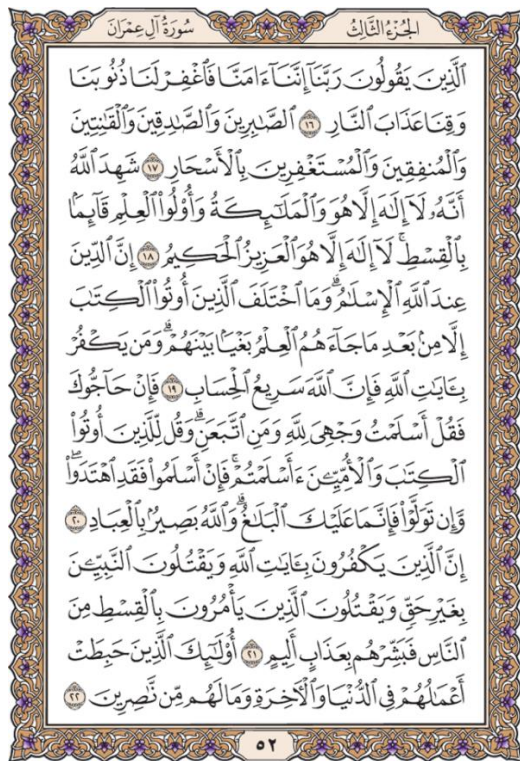 الجُزْءُ الثَّالِثُ سُورَةُ آلِ عِمْرَانَ
ٱلَّذِينَ يَقُولُونَ رَبَّنَآ إِنَّنَآ ءَامَنَّا فَٱغْفِرْ لَنَا ذُنُوبَنَا
وَقِنَا عَذَابَ ٱلنَّارِ ١٦ ٱلصَّٰبِرِينَ وَٱلصَّٰدِقِينَ وَٱلْقَٰنِتِينَ
وَٱلْمُنفِقِينَ وَٱلْمُسْتَغْفِرِينَ بِٱلْأَسْحَارِ ١٧ شَهِدَ ٱللَّهُ
أَنَّهُۥ لَآ إِلَٰهَ إِلَّا هُوَ وَٱلْمَلَٰٓئِكَةُ وَأُو۟لُوا۟ ٱلْعِلْمِ قَآئِمًۢا
بِٱلْقِسْطِ ۚ لَآ إِلَٰهَ إِلَّا هُوَ ٱلْعَزِيزُ ٱلْحَكِيمُ ١٨ إِنَّ ٱلدِّينَ
عِندَ ٱللَّهِ ٱلْإِسْلَٰمُ ۗ وَمَا ٱخْتَلَفَ ٱلَّذِينَ أُوتُوا۟ ٱلْكِتَٰبَ
إِلَّا مِنۢ بَعْدِ مَا جَآءَهُمُ ٱلْعِلْمُ بَغْيًۢا بَيْنَهُمْ ۗ وَمَن يَكْفُرْ
بِـَٔايَٰتِ ٱللَّهِ فَإِنَّ ٱللَّهَ سَرِيعُ ٱلْحِسَابِ ١٩ فَإِنْ حَآجُّوكَ
فَقُلْ أَسْلَمْتُ وَجْهِىَ لِلَّهِ وَمَنِ ٱتَّبَعَنِ ۗ وَقُل لِّلَّذِينَ أُوتُوا۟
ٱلْكِتَٰبَ وَٱلْأُمِّيِّـۧنَ ءَأَسْلَمْتُمْ ۚ فَإِنْ أَسْلَمُوا۟ فَقَدِ ٱهْتَدَوا۟ ۖ
وَّإِن تَوَلَّوْا۟ فَإِنَّمَا عَلَيْكَ ٱلْبَلَٰغُ ۗ وَٱللَّهُ بَصِيرٌۢ بِٱلْعِبَادِ ٢٠
إِنَّ ٱلَّذِينَ يَكْفُرُونَ بِـَٔايَٰتِ ٱللَّهِ وَيَقْتُلُونَ ٱلنَّبِيِّـۧنَ
بِغَيْرِ حَقٍّ وَيَقْتُلُونَ ٱلَّذِينَ يَأْمُرُونَ بِٱلْقِسْطِ مِنَ
ٱلنَّاسِ فَبَشِّرْهُم بِعَذَابٍ أَلِيمٍ ٢١ أُو۟لَٰٓئِكَ ٱلَّذِينَ حَبِطَتْ
أَعْمَٰلُهُمْ فِى ٱلدُّنْيَا وَٱلْـَٔاخِرَةِ وَمَا لَهُم مِّن نَّٰصِرِينَ ٢٢
٥٢